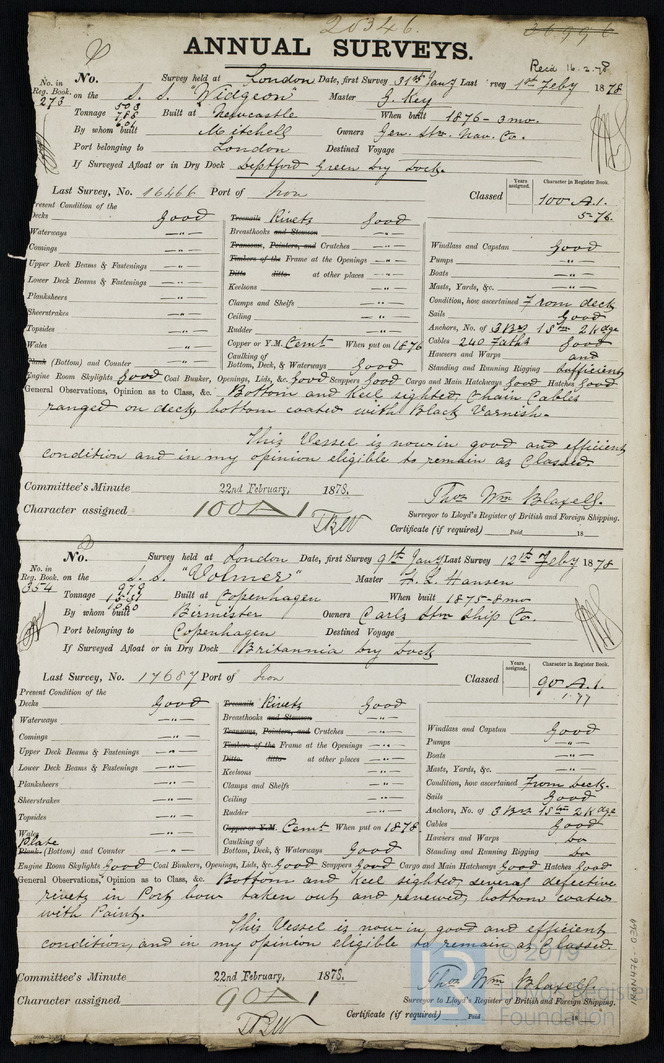 20346.
36996
ANNUAL SURVEYS.
Recd 16.2.78
No. in Reg. Book. 273
No. Survey held at London Date, first Survey 31st Jany Last Survey 1st Feby 1878
on the S. S. "Widgeon" Master G. Key
Tonnage 503 788 Built at Newcastle When built 1876 - 3 mo.
By whom built Mitchell Owners Gen. Stm. Nav. Co.
Port belonging to London Destined Voyage
If Surveyed Afloat or in Dry Dock Deptford Green Dry Dock.
Last Survey, No. 16466 Port of Iron Classed
Years assigned. Character in Register Book.
100 A.1.
5-76.
Present Condition of the
Decks good
Waterways —"—
Comings —"—
Upper Deck Beams & Fastenings —"—
Lower Deck Beams & Fastenings —"—
Planksheers —"—
Sheerstrakes —"—
Topsides —"—
Wales —"—
Plank (Bottom) and Counter —"—
Treenails Rivets good
Breasthooks and Stemson —"—
Transom, Pointers, and Crutches —"—
Timbers of the Frame at the Openings —"—
Ditto ditto at other places —"—
Keelsons —"—
Clamps and Shelfs —"—
Ceiling —"—
Rudder —"—
Copper or Y.M. Cemt When put on 1876
Caulking of Bottom, Deck, & Waterways Good
Windlass and Capstan Good
Pumps —"—
Boats —"—
Masts, Yards, &c. —"—
Condition, how ascertained From deck
Sails Good
Anchors, No. of 3 Brs 1 Stm 2 Kdge
Cables 240 Faths Good
Hawsers and Warps and
Standing and Running Rigging Sufficient
Engine Room Skylights Good Coal Bunker, Openings, Lids, &c. Good Scuppers Good Cargo and Main Hatchways Good Hatches Good
General Observations, Opinion as to Class, &c. Bottom and Keel sighted, Chain Cables
ranged on deck, bottom coated with Black Varnish.
This Vessel is now in good and efficient
condition and in my opinion eligible to remain as Classed.
Committee's Minute 22nd February, 1878.
Character assigned 100 A 1
Thos Wm Blaxell.
Surveyor to Lloyd's Register of British and Foreign Shipping.
Certificate (if required) Paid 18
No. in Reg. Book. 354
No. Survey held at London Date, first Survey 9th Jany Last Survey 12th Feby 1878
on the S. S. "Volmer" Master H. S. Hansen
Tonnage 979 Built at Copenhagen When built 1875-8mo
By whom built Birmester Owners Carls Stm Ship Co.
Port belonging to Copenhagen Destined Voyage
If Surveyed Afloat or in Dry Dock Britannia Dry Dock
Last Survey, No. 17687 Port of Iron Classed
Years assigned. Character in Register Book.
90 A.1.
1-77
Present Condition of the
Decks Good
Waterways —"—
Comings —"—
Upper Deck Beams & Fastenings —"—
Lower Deck Beams & Fastenings —"—
Planksheers —"—
Sheerstrakes —"—
Topsides —"—
Wales —"—
Plate
Plank (Bottom) and Counter —"—
Treenails Rivets Good
Breasthooks and Stemson —"—
Transoms, Pointers, and Crutches —"—
Timbers of the Frame at the Openings —"—
Ditto ditto at other places —"—
Keelsons —"—
Clamps and Shelfs —"—
Ceiling —"—
Rudder —"—
Copper or Y.M. Cemt When put on 1878
Caulking of Bottom, Deck, & Waterways Good
Windlass and Capstan Good
Pumps —"—
Boats —"—
Masts, Yards, &c. —"—
Condition, how ascertained From Deck.
Sails Good
Anchors, No. of 3 Brs 1 Stm 2 Kdge
Cables Good
Hawsers and Warps Do
Standing and Running Rigging Do
Engine Room Skylights Good Coal Bunkers, Openings, Lids, &c. Good Scuppers Good Cargo and Main Hatchways Good Hatches Good
General Observations, Opinion as to Class, &c. Bottom and Keel sighted, several defective
rivets in Port bow taken out and renewed, bottom coated
with Paint.
This Vessel is now in good and efficient
condition, and in my opinion eligible to remain as Classed.
Committee's Minute 22nd February, 1878.
Character assigned 90 A 1
Thos Wm Blaxell.
Surveyor to Lloyd's Register of British and Foreign Shipping.
Certificate (if required) Paid
IRON476-0369
© 2019
Lloyd's Register
Foundation